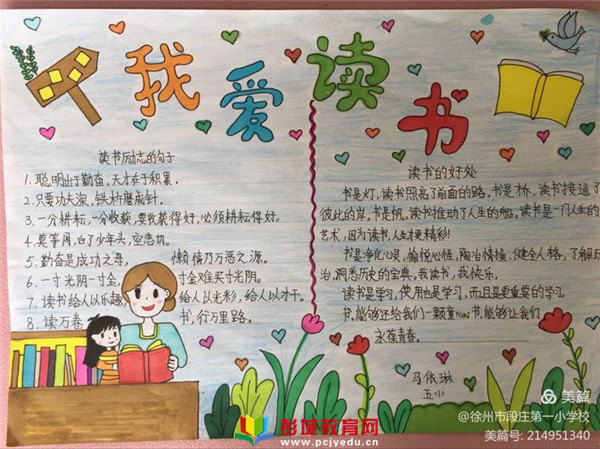 我爱读书
读书励志的句子
1.聪明出于勤奋,天才在于积累.
2.只要功夫深,铁杵磨成针.
3.一分耕耘,一分收获,要收获得好,必须耕耘得好.
4.莫等闲,白了少年头,空悲切.
5.勤奋是成功之母, 懒惰乃万恶之源.
6.一寸光阴一寸金, 寸金难买寸光阴.
7.读书给人以乐趣, 给人以光彩,给人以才干.
8.读万卷 书,行万里路.
读书的好处
书是灯,读书照亮了前面的路.书是桥,读书接通了
彼此的岸.书是帆,读书推动了人生的船.读书是一门人生的
艺术,因为读书,人生才更精彩!
书是净化心灵,愉悦心性,陶冶情操,健全人格,了解政
治,洞悉历史的宝典.我读书,我快乐.
读书是学习,使用也是学习,而且是更重要的学习.
书,能够还给我们一颗童心;书,能够让我们
永葆青春.
马依琳
五小
彭城教育网
www.pcjyedu.cn
美篇
@徐州市段庄第一小学校
美篇号: 214951340